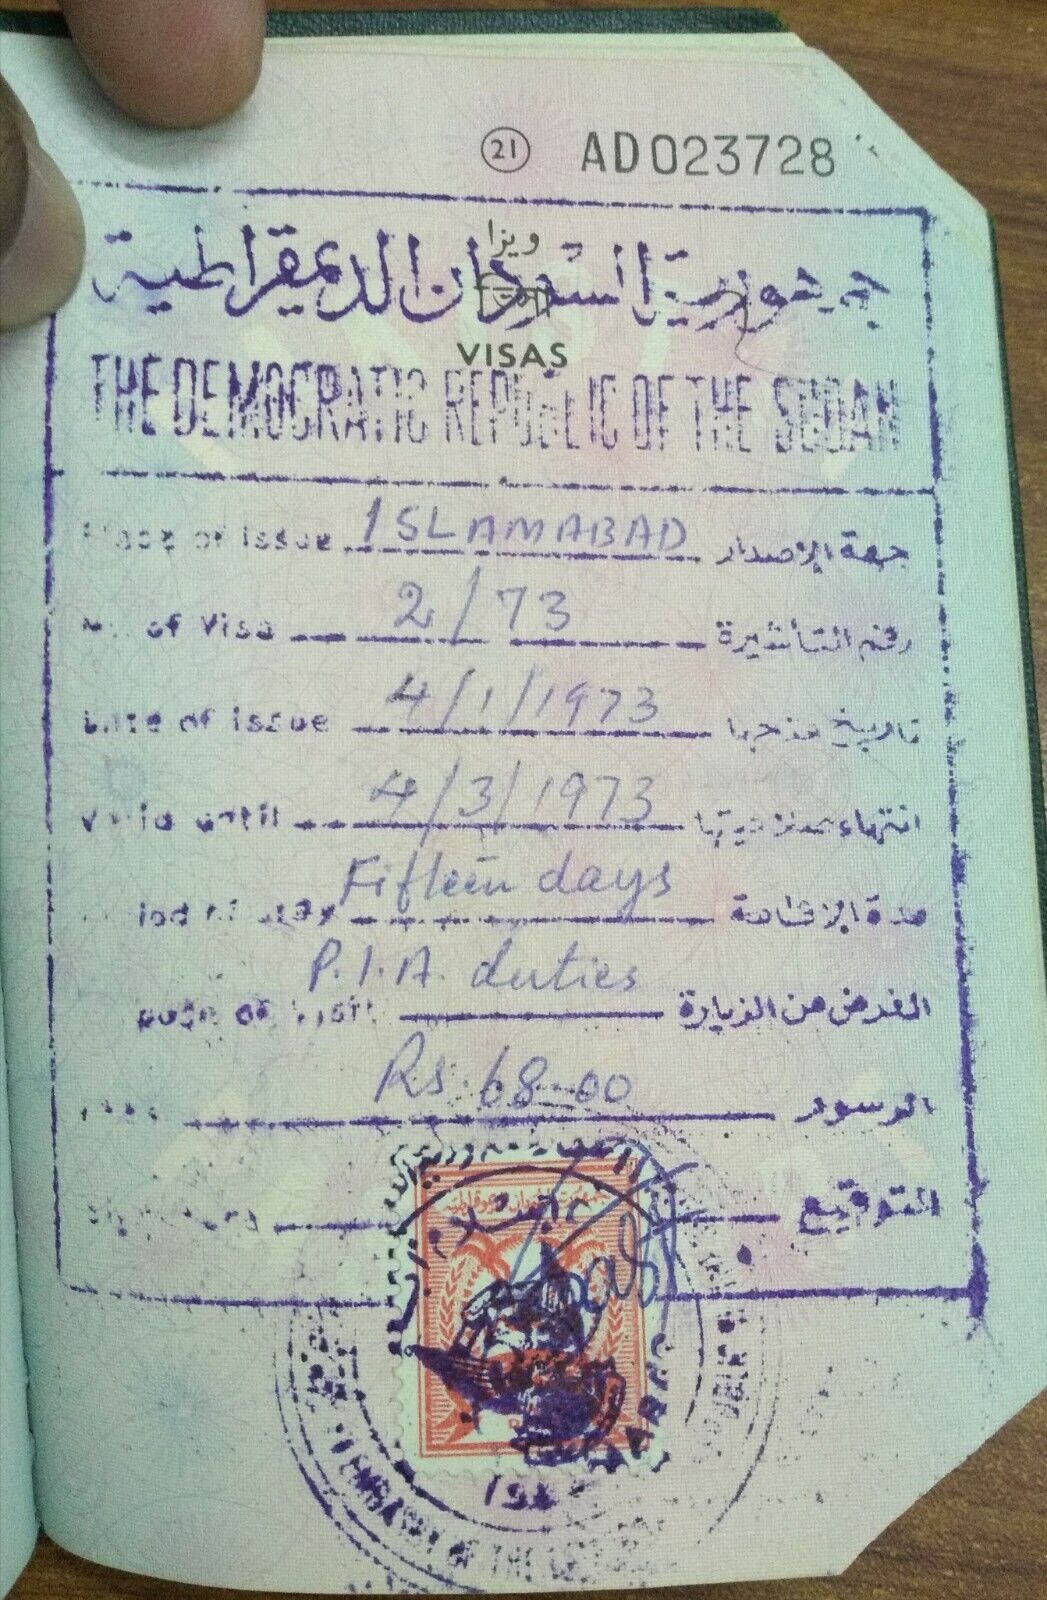 21 AD023728
ویزا
جمهورية السودان الديمقراطية
VISAS
THE DEMOCRATIC REPUBLIC OF THE SUDAN
Place of Issue ISLAMABAD جهة الإصدار
No. of Visa 2/73 رقم التأشيرة
Date of issue 4/1/1973 تاريخ منحها
Valid until 4/3/1973 انتهاء صلاحيتها
Fifteen days مدة الإقامة
P.I.A. duties الغرض من الزيارة
Rs. 68-00 الرسوم
التوقيع
EMBASSY OF THE